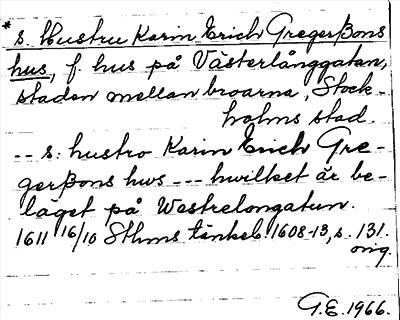 *S. Hustru Karin Erich Gregerßons
hus, f. hus på Västerlånggatan,
staden mellan broarna, Stock-
holms stad.
-- s: hustro Karin Erich Gre-
gerßons hws --- hwilket är be-
läget på Westrelongatun.
1611 16/10 Sthms tänkeb. 1608-13, s. 131.
orig.
G.E. 1966.